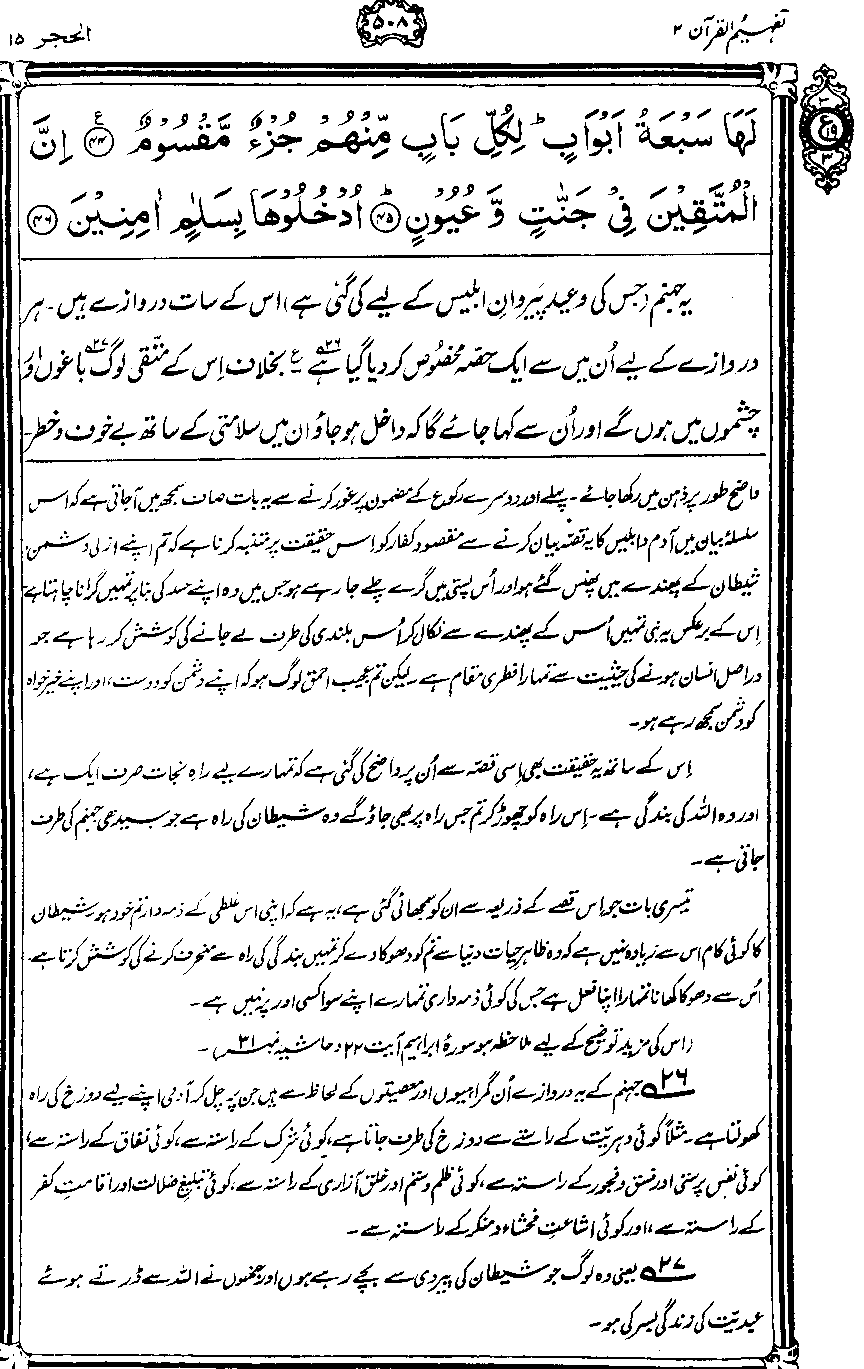 تفہیم القرآن ۲
۵۰۸
الحجر ۱۵
لَهَا سَبْعَةُ اَبْوَابٍ ؕ لِكُلِّ بَابٍ مِّنْهُمْ جُزْءٌ مَّقْسُوْمٌ ﴿۴۴﴾ ع اِنَّ
الْمُتَّقِيْنَ فِيْ جَنّٰتٍ وَّ عُيُوْنٍ ﴿۴۵﴾ؕ اُدْخُلُوْهَا بِسَلٰمٍ اٰمِنِيْنَ ﴿۴۶﴾
۳
ع
۱۹
۳
یہ جہنم (جس کی وعید پیروانِ ابلیس کے لیے کی گئی ہے) اس کے سات دروازے ہیں۔ ہر
دروازے کے لیے اُن میں سے ایک حصہ مخصُوص کر دیا گیا ہے ۲۶ ع بخلاف اِس کے متّقی لوگ ۲۷ باغوں اور
چشموں میں ہوں گے اور اُن سے کہا جائے گا کہ داخل ہو جاؤ ان میں سلامتی کے ساتھ بے خوف و خطر۔
واضح طور پر ذہن میں رکھا جائے۔ پہلے اور دوسرے رکوع کے مضمون پر غور کرنے سے یہ بات صاف سمجھ میں آجاتی ہے کہ اس
سلسلۂ بیان میں آدم و ابلیس کا یہ قصّہ بیان کرنے سے مقصود کفار کو اس حقیقت پر متنبہ کرنا ہے کہ تم اپنے ازلی دشمن
شیطان کے پھندے میں پھنس گئے ہو اور اُس پستی میں گرے چلے جا رہے ہو جس میں وہ اپنے حسد کی بنا پر تمہیں گرانا چاہتا ہے
اِس کے برعکس یہ نبی تمہیں اُس کے پھندے سے نکال کر اُس بلندی کی طرف لے جانے کی کوشش کر رہا ہے جو
دراصل انسان ہونے کی حیثیت سے تمہارا فطری مقام ہے۔ لیکن تم عجیب احمق لوگ ہو کہ اپنے دشمن کو دوست، اور اپنے خیر خواہ
کو دشمن سمجھ رہے ہو۔
اِس کے ساتھ یہ حقیقت بھی اِسی قصّہ سے اُن پر واضح کی گئی ہے کہ تمہارے لیے راہِ نجات صرف ایک ہے،
اور وہ اللہ کی بندگی ہے۔ اِس راہ کو چھوڑ کر تم جس راہ پر بھی جاؤ گے وہ شیطان کی راہ ہے جو سیدھی جہنم کی طرف
جاتی ہے۔
تیسری بات جو اِس قصے کے ذریعہ سے ان کو سمجھائی گئی ہے، یہ ہے کہ اپنی اس غلطی کے ذمہ دار تم خود ہو۔ شیطان
کا کوئی کام اس سے زیادہ نہیں ہے کہ وہ ظاہر حیات دنیا سے تم کو دھوکا دے کر تمہیں بندگی کی راہ سے منحرف کرنے کی کوشش کرتا ہے۔
اُس سے دھوکا کھانا تمہارا اپنا فعل ہے جس کی کوئی ذمہ داری تمہارے اپنے سوا کسی اور پر نہیں ہے۔
(اس کی مزید توضیح کے لیے ملاحظہ ہو سورۂ ابراہیم آیت ۲۲ و حاشیہ نمبر ۳۱)۔
۲۶ جہنم کے یہ دروازے اُن گمراہیوں اور معصیتوں کے لحاظ سے ہیں جن پہ چل کر آدمی اپنے لیے دوزخ کی راہ
کھولتا ہے۔ مثلاً کوئی دہریّت کے راستے سے دوزخ کی طرف جاتا ہے، کوئی شرک کے راستہ سے، کوئی نفاق کے راستہ سے،
کوئی نفس پرستی اور فسق و فجور کے راستہ سے، کوئی ظلم و ستم اور خلق آزاری کے راستہ سے، کوئی تبلیغِ ضلالت اور اقامتِ کفر
کے راستہ سے، اور کوئی اشاعتِ فحشاء و منکر کے راستہ سے۔
۲۷ یعنی وہ لوگ جو شیطان کی پیروی سے بچے رہے ہوں اور جنھوں نے اللہ سے ڈرتے ہوئے
عبدیّت کی زندگی بسر کی ہو۔